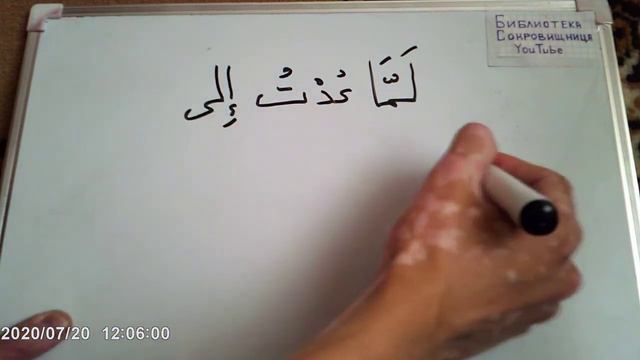 Библиотека
Сокровищница
YouTube
لَمَّا عُدْتُ إِلى
2020/07/20 12:06:00